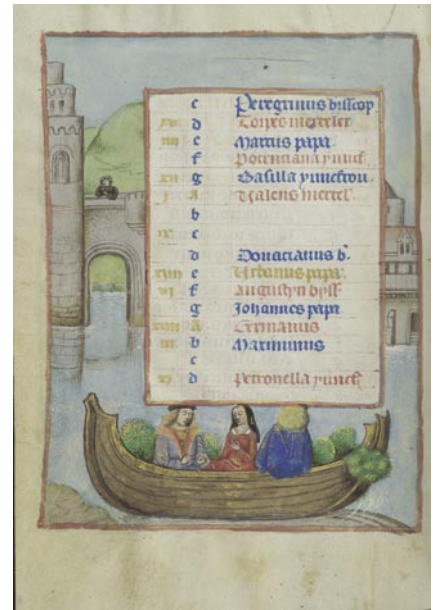 c Peregrinus bisscop
xv d Torpes merteler
iiii e Marcus papa
f Potenciana ȷuncf.
xii g Basilla ȷuncfrou
i A Valens mertel.
b
ix c
d Donacianus b.
xvii e Urbanus papa
vi f Augustyn byss
g Johannes papa
xiiii A Germanus
iii b Maximinus
c
xi d Petronella ȷuncf